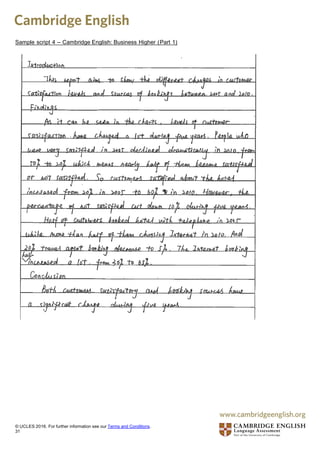 Cambridge English
Sample script 4 – Cambridge English: Business Higher (Part 1)
Introduction
This report aims to show the different changes in customer
satisfaction levels and sources of bookings between 2005 and 2010.
Findings
As it can be seen in the charts, levels of customer
satisfaction have changed a lot during five years. People who
were very satisfied in 2005 declined dramatically in 2010 from
50% to 20% which means nearly half of them become satisfied
or not satisfied. So customers satisfied about the hotel
increased from 20% in 2005 to 60% in 2010. However, the
percentage of not satisfied cut down 10% during five years.
Most of customers booked hotel with telephone in 2005
while more than half of them chosing Internet in 2010. And
20% travel agent booking decrease to 5%. The Internet booking
has increased a lot from 30% to 65%.
Conclusion
Both customers satisfactory and booking sources have
a significat change during five years.
www.cambridgeenglish.org
© UCLES 2016. For further information see our Terms and Conditions.
31
CAMBRIDGE ENGLISH
Language Assessment
Part of the University of Cambridge